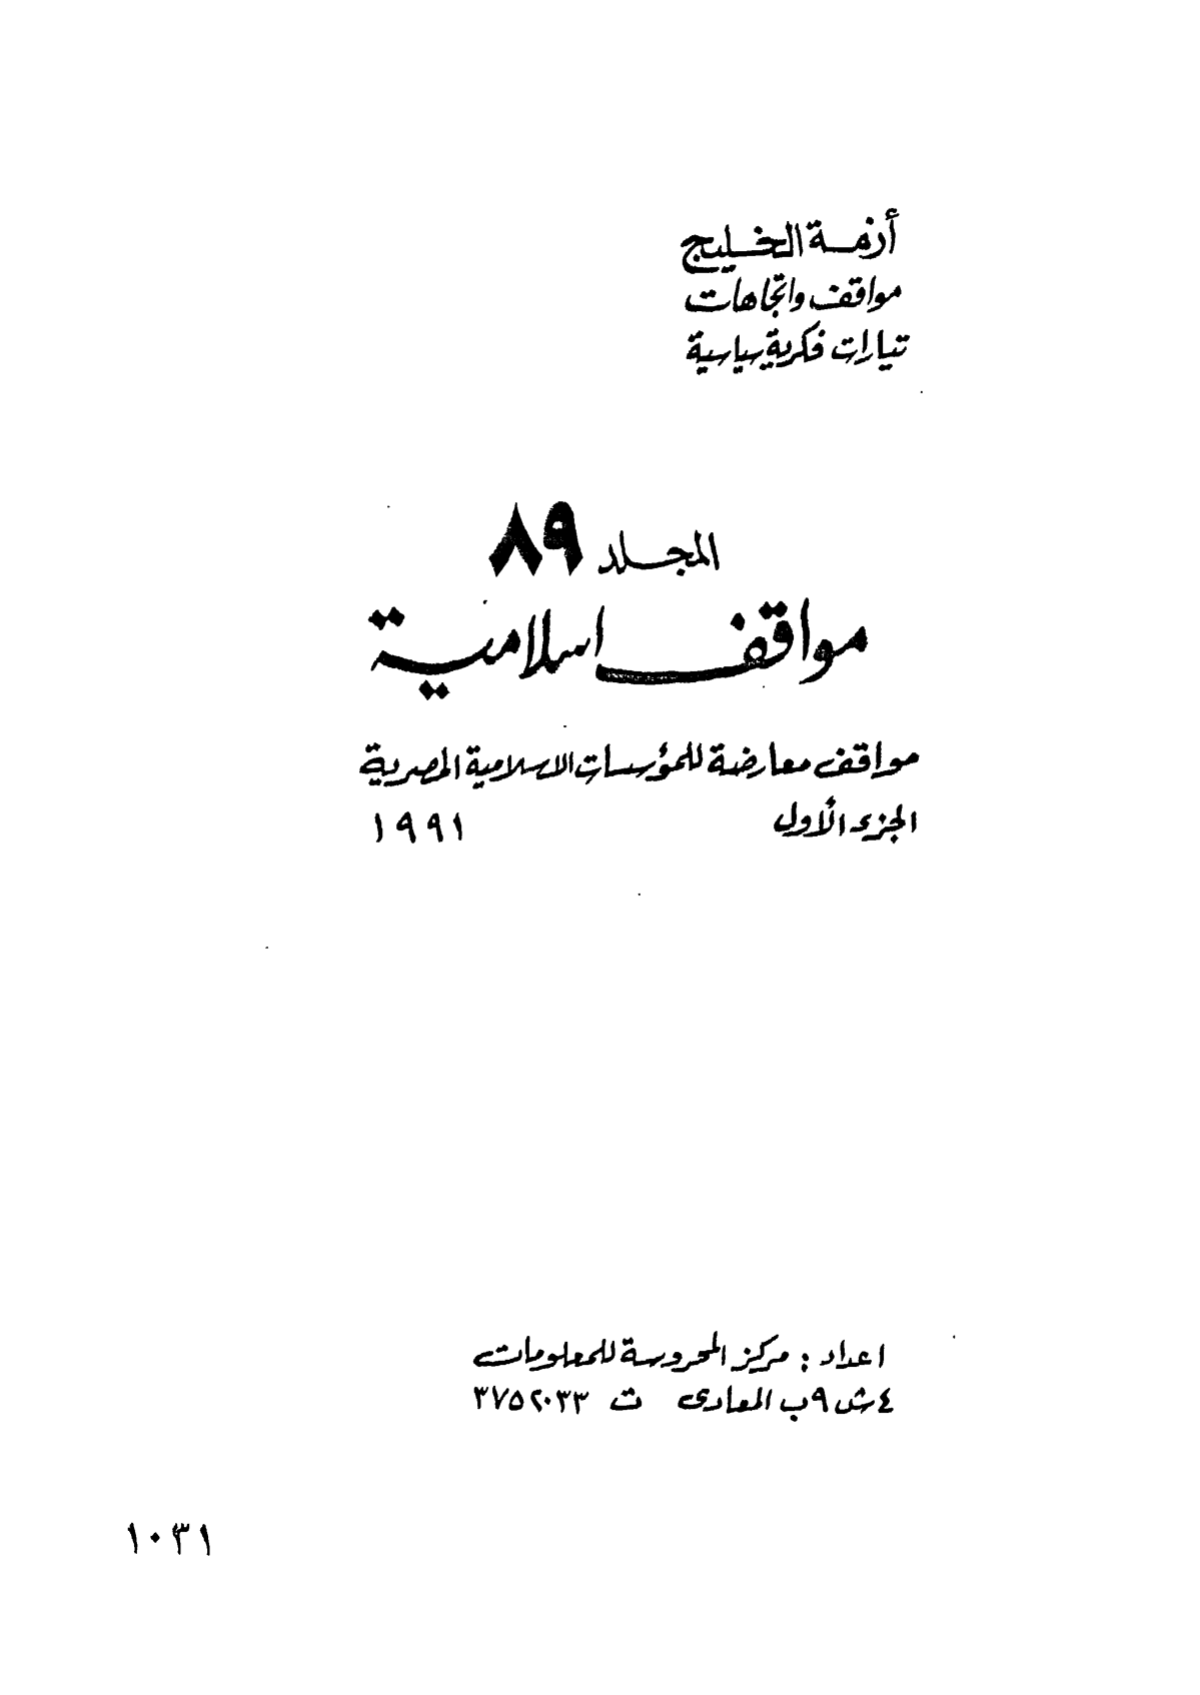 أزمة الخليج
مواقف واتجاهات
تيارات فكرية سياسية
المجلد ٨٩
مواقف اسلامية
مواقف معارضة للمؤسسات الاسلامية المصرية
الجزء الأول ١٩٩١
اعداد : مركز المحروسة للمعلومات
٤ ش ٩ب المعادى ت ٣٧٥٢٠٣٣
١٠٣١